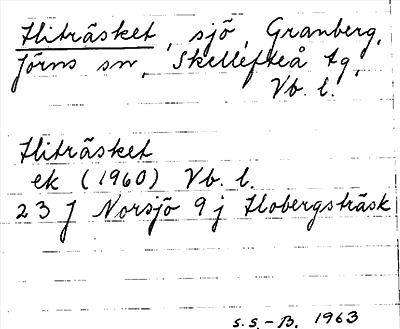 Hliträsket, sjö, Granberg,
Jörns sn, Skellefteå tg,
Vb. l.
Hliträsket
ek (1960) Vb. l.
23 J Norsjö 9 j Hobergsträsk
S.S.-B. 1963